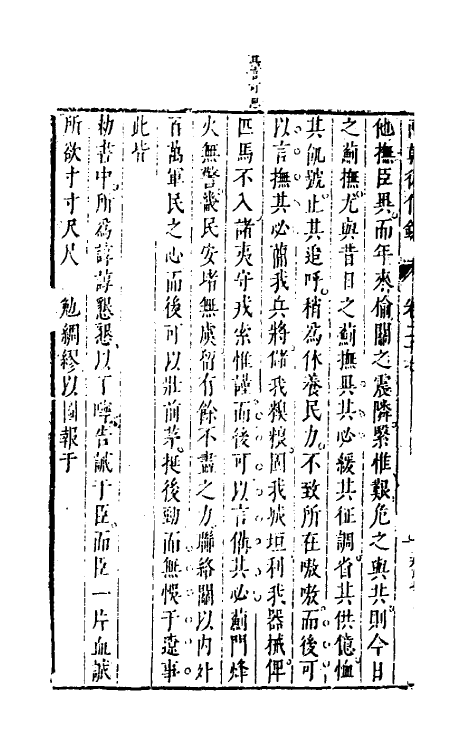 其言可思
兩朝從信錄 卷二十七
他撫臣異而年來偷關之震隣緊惟艱危之與共則今日
之薊撫尤與昔日之薊撫異其必緩其征調省其供億恤
其飢號止其追呼稍為休養民力不致所在嗷嗷而後可
以言撫其必簡我兵將儲我糗粮固我城垣利我器械俾
匹馬不入諸夷守戎索惟謹而後可以言備其必薊門烽
火無警畿民安堵無虞留有餘不盡之力聯絡關以內外
百萬軍民之心而後可以壯前茅挺後勁而無悞于遼事
此皆
勑書中所為諄諄懇懇以丁嚀告誡于臣而臣一片血誠
所欲寸寸尺尺 勉綢繆以圖報于